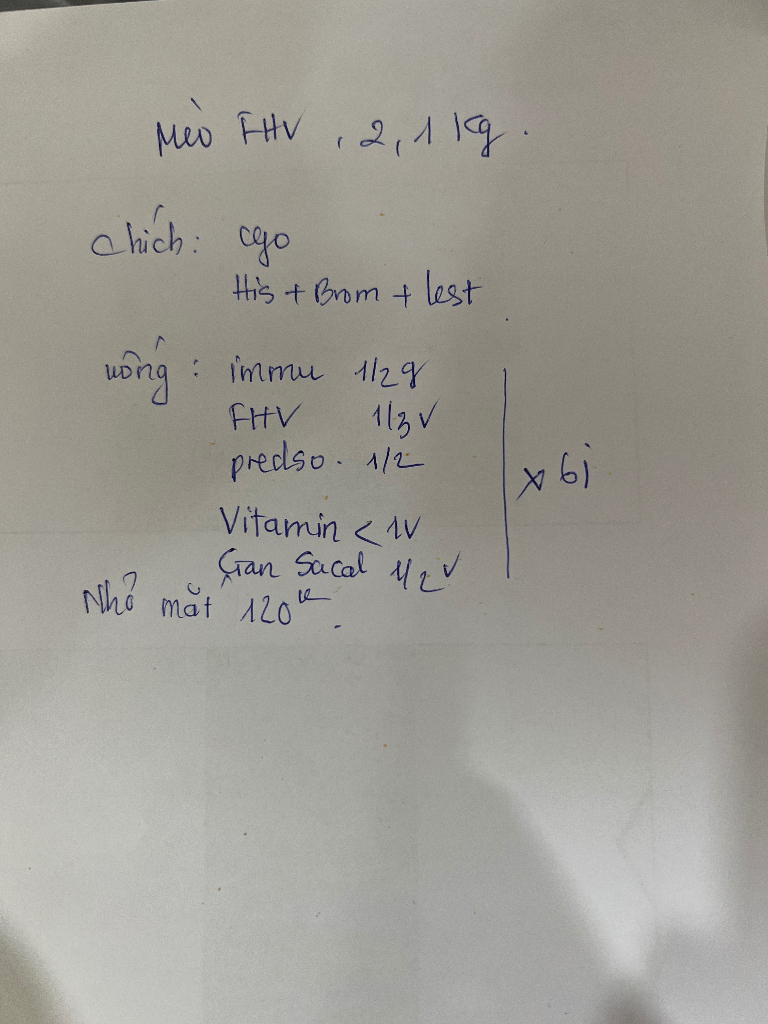 Mèo FHV, 2,1 kg.
Chích: cyo
His + Brom + lest
uống: immu 1/2g
FHV 1/3 v
predso. 1/2
x 6j
Vitamin < 1v
Gan Sacal 1/2 v
Nhỏ mắt 120k.